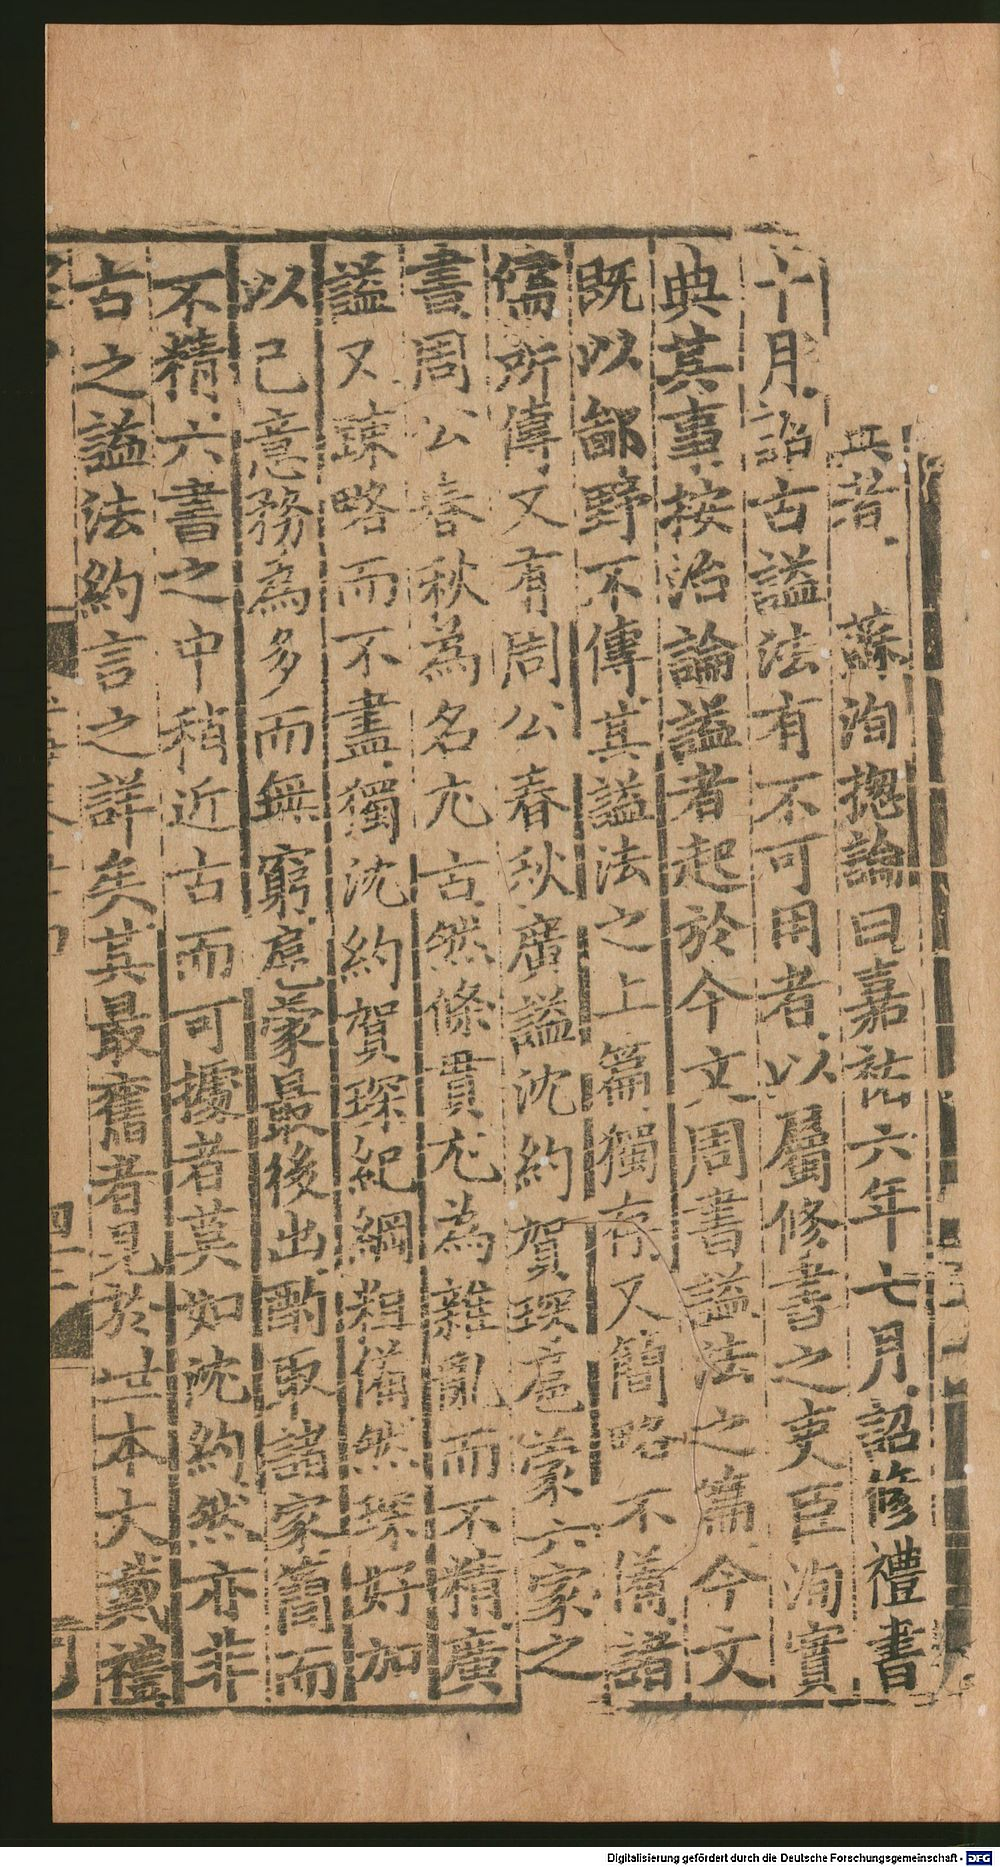 兵者 蘇洵揔論曰嘉祐六年七月詔修禮書
十月詔古謚法有不可用者以屬修書之吏臣洵實
典其事按治論謚者起於今文周書謚法之篇今文
既以鄙野不傳其謚法之上篇獨存又簡略不備諸
儒所傳又有周公春秋廣謚沈約賀琛扈蒙六家之
書周公春秋為名尤古然條貫尤為雜亂而不精廣
謚又疎略而不盡獨沈約賀琛紀綱粗備然琛好加
以己意務為多而無窮扈蒙最後出酌取諸家舊而
不精六書之中稍近古而可據者莫如沈約然亦非
古之謚法約言之詳矣其最舊者見於世本大戴禮
Digitalisierung gefördert durch die Deutsche Forschungsgemeinschaft - DFG